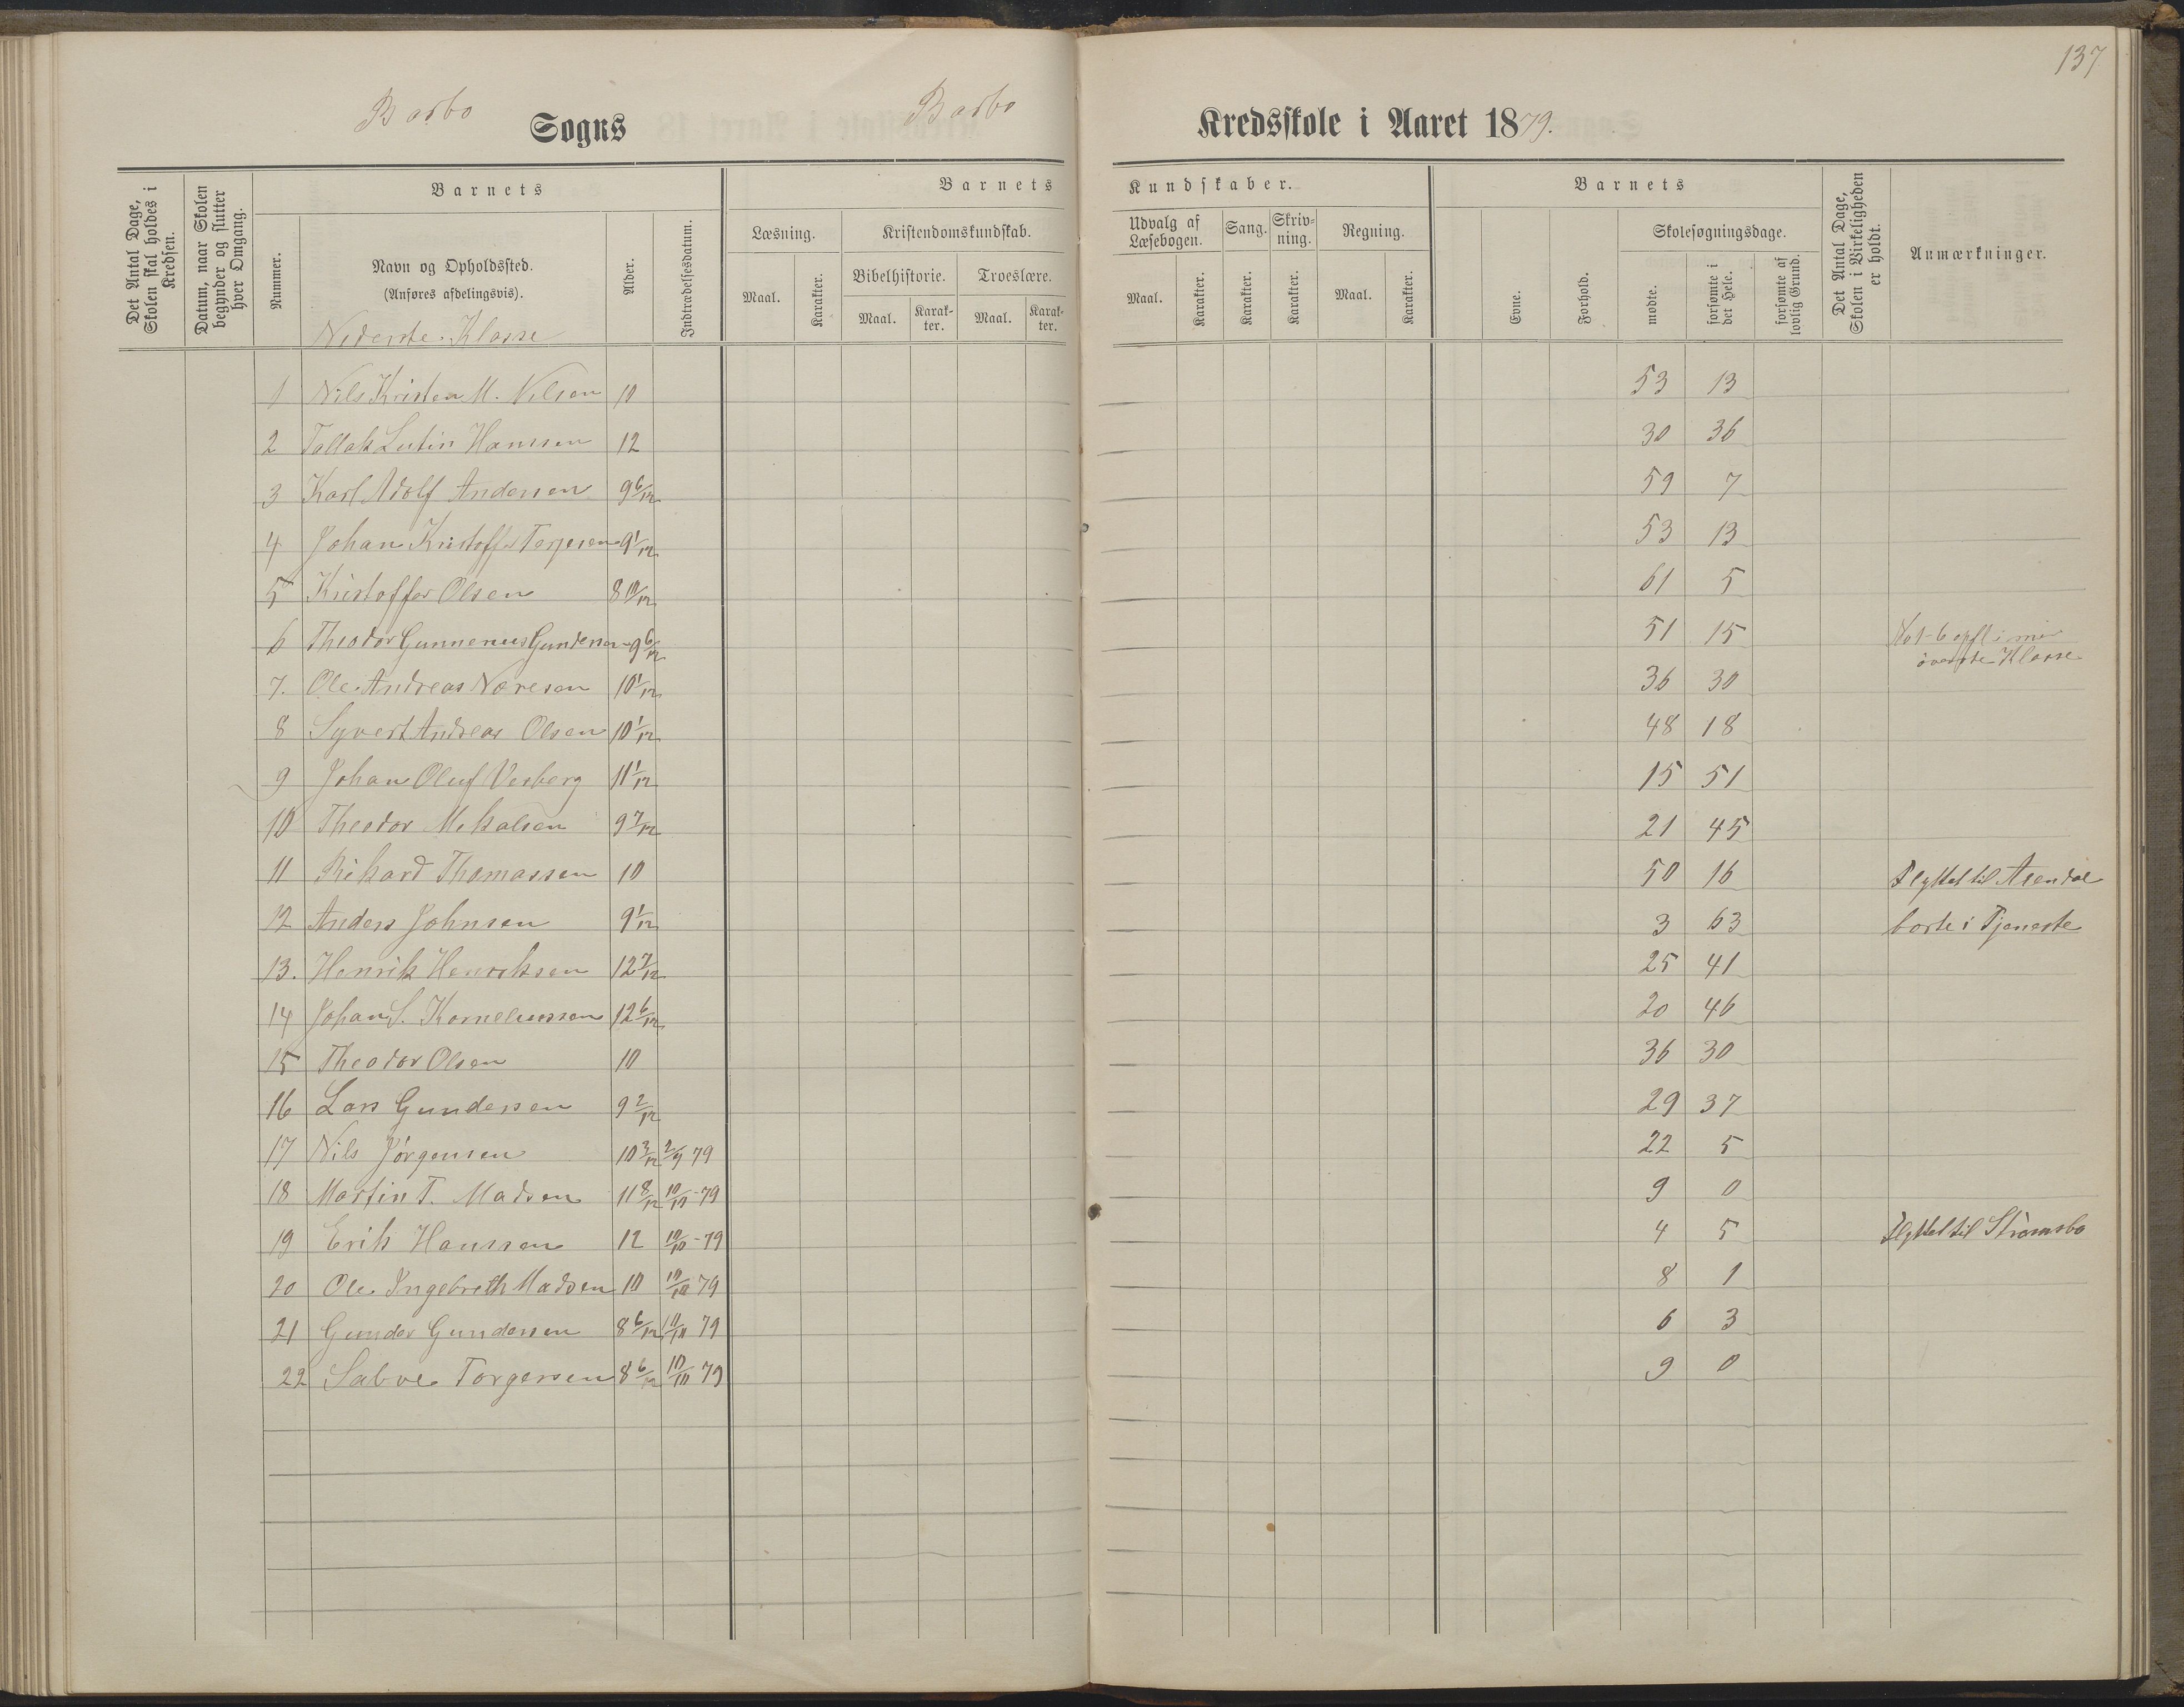 137
Barbo Sogns Barbo Kredsskole i Aaret 1879.
Det Antal Dage, Skolen skal holdes i Kredsen.
Datum, naar Skolen begynder og slutter hver Omgang.
Barnets
Nummer.
Navn og Opholdssted.
(Anføres afdelingsvis).
Nederste Klasse
Alder.
Indtrædelsesdatum.
Barnets Kundskaber.
Læsning.
Maal. Karakter.
Kristendomskundskab.
Bibelhistorie. Troeslære.
Maal. Karakter. Maal. Karakter.
Udvalg af Læsebogen. Sang. Skrivning. Regning.
Maal. Karakter. Karakter. Karakter. Maal. Karakter.
Barnets
Evne. Forhold.
Skolesøgningsdage.
mødte. forsømte i det Hele. forsømte af lovlig Grund.
Det Antal Dage, Skolen i Virkeligheden er holdt.
Anmærkninger.
1 Nils Kristen M. Nilsen 10 53 13
2 Tallak Hanssen 12 30 36
3 Karl Adolf Andersen 9 6/12 59 7
4 Johan Kristoffer Terjesen 9 1/12 53 13
5 Kristoffer Olsen 8 10/12 61 5
6 Theodor Gunnerius Gundersen 9 6/12 51 15 No 1-6 opfl i
øverste Klasse
7. Ole Andreas Noresen 10 1/12 36 30
8 Syvert Andreas Olsen 10 1/12 48 18
9 Johan Oluf Vesberg 11 1/12 15 51
10 Theodor Mikalsen 9 7/12 21 45
11 Rikard Thomassen 10 50 16 Flyttet til Arendal
12 Anders Johnsen 9 1/12 3 63 borte i Tjeneste
13. Henrik Henriksen 12 7/12 25 41
14 Johan S. Korneliussen 12 6/12 20 46
15 Theodor Olsen 10 36 30
16 Lars Gundersen 9 2/12 29 37
17 Nils Jörgensen 10 3/12 2/9 79 22 5
18 Martin T. Madsen 11 8/12 10/10 -79 9 0
19 Erik Hanssen 12 10/10 -79 4 5 Flyttet til Strömsbo
20 Ole Ingebreth Madsen 10 10/10 79 8 1
21 Gunder Gundersen 8 6/12 10/10 79 6 3
22 Salve Torgersen 8 6/12 10/10 79 9 0